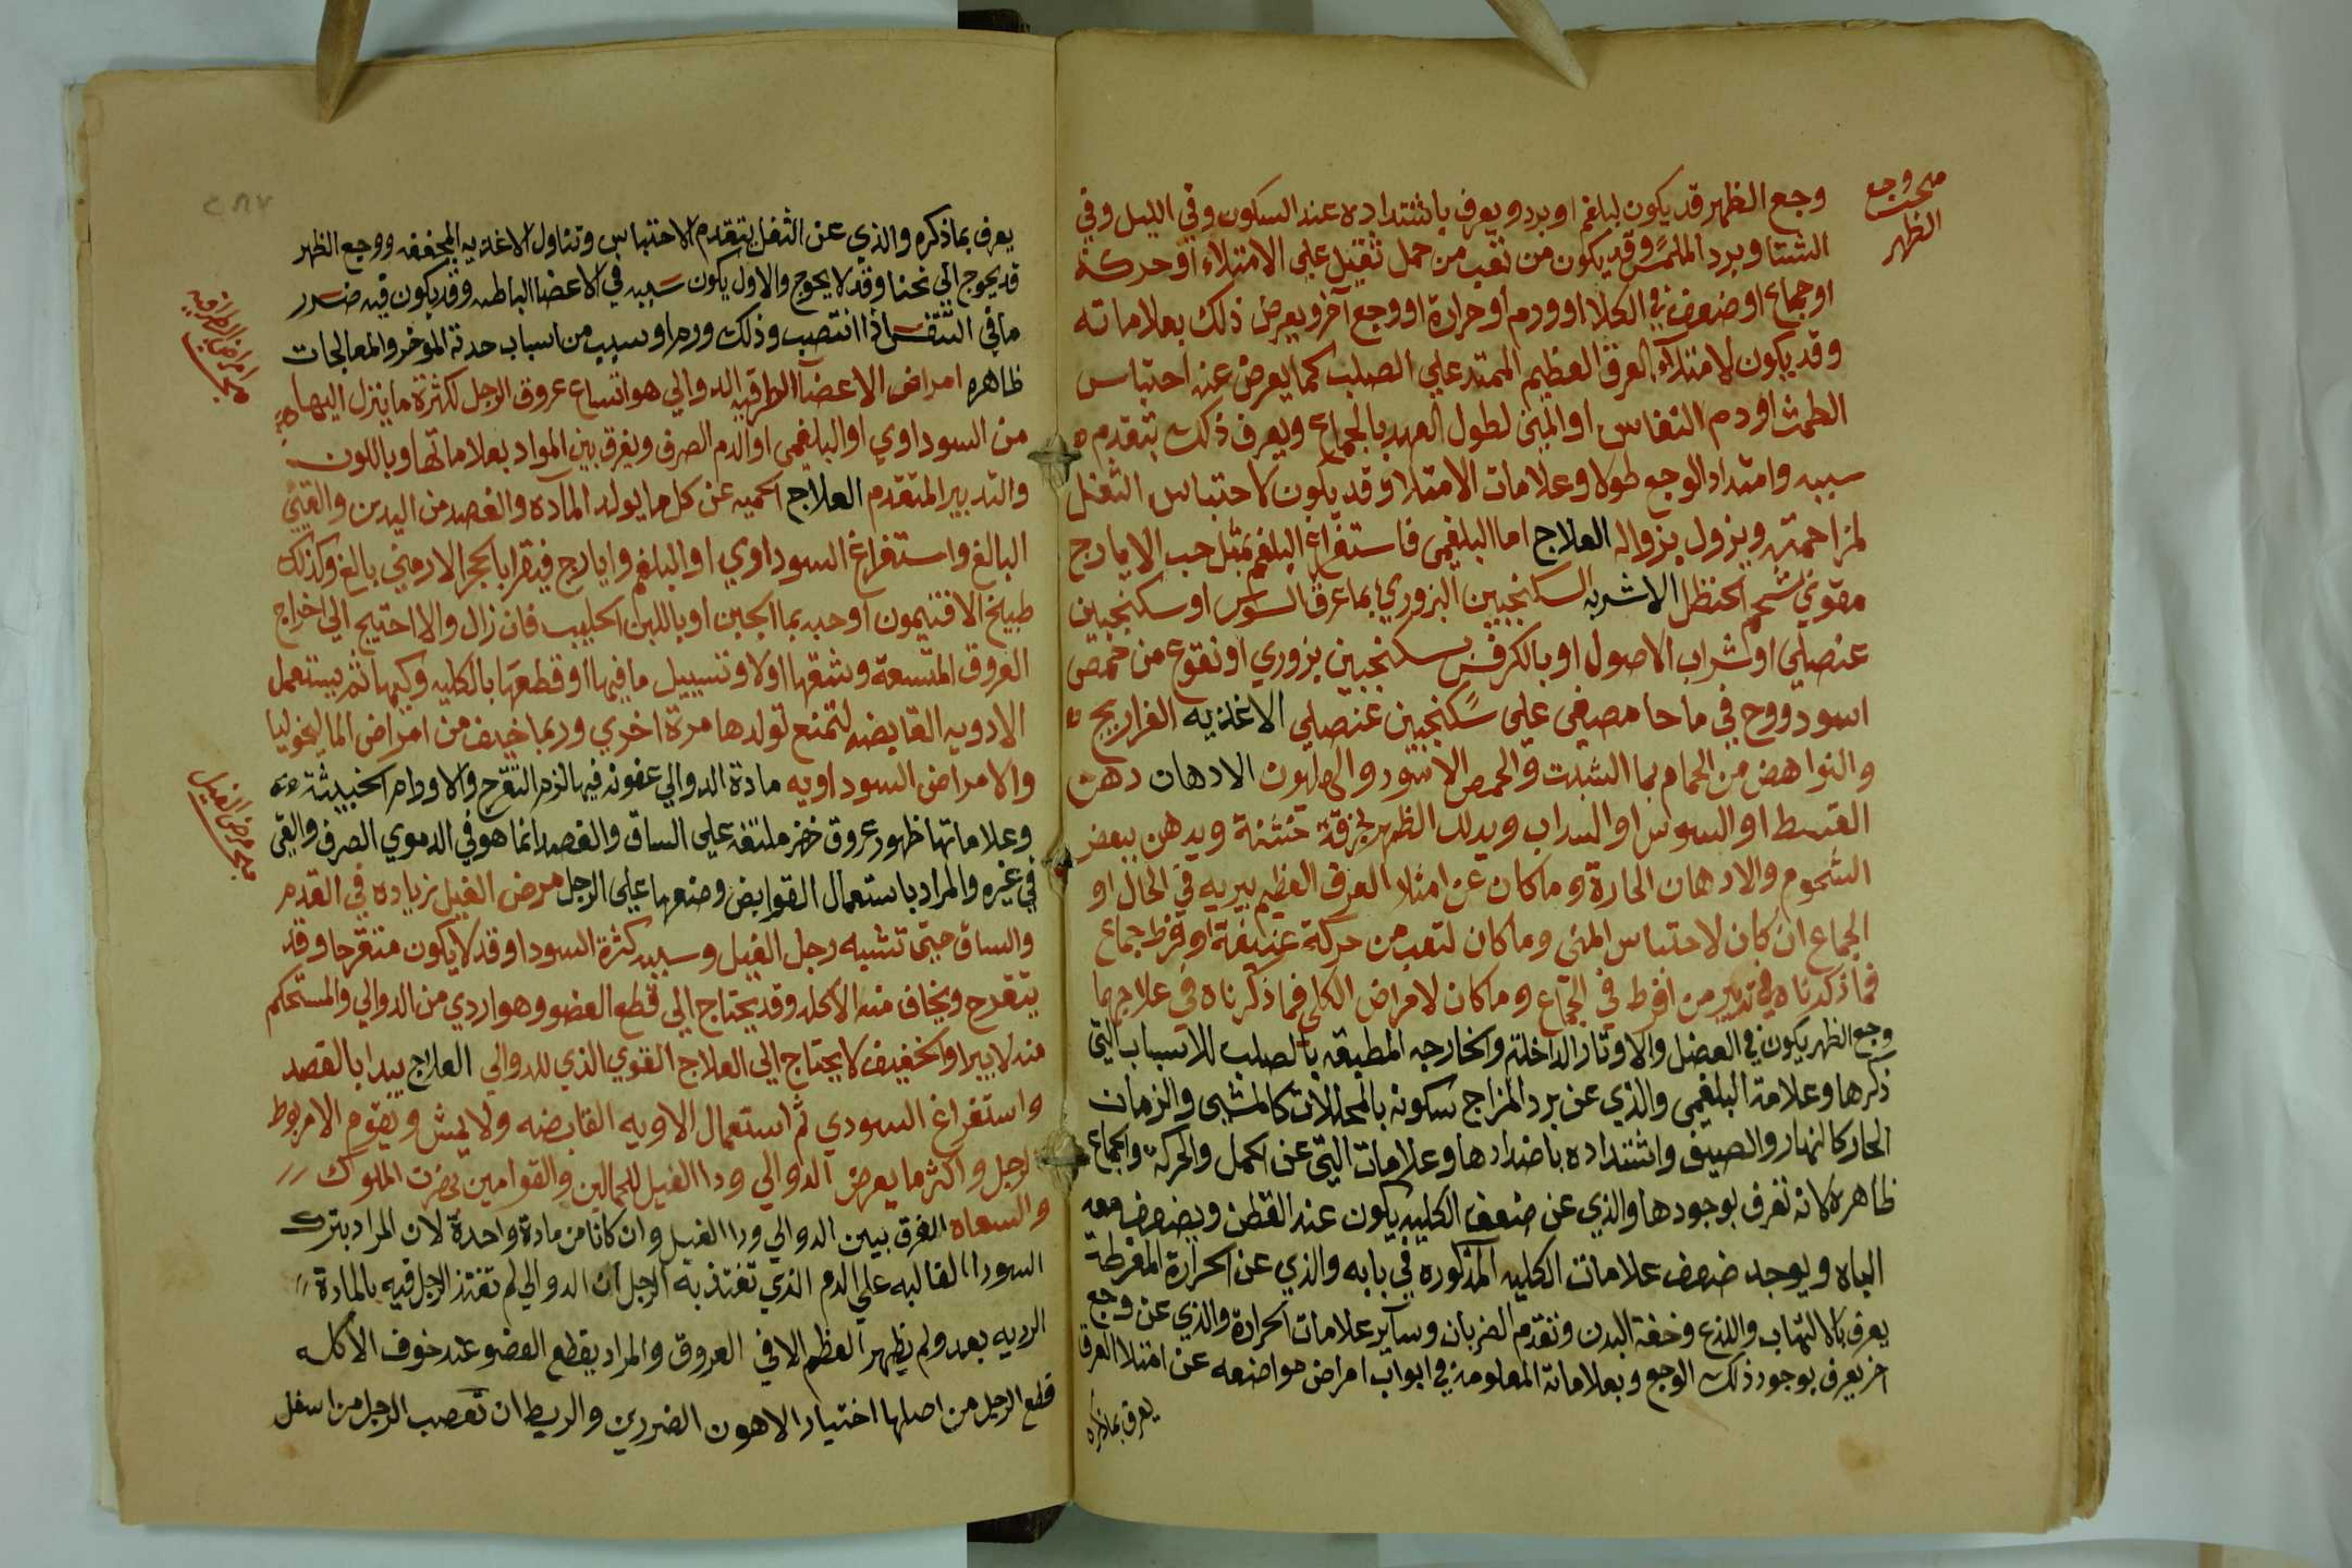 مبحث وجع
الظهر
وجع الظهر قد يكون لبلغم او برد ويعرف باشتداده عند السكون وفي الليل وفي
الشتا وبرد الملمس وقد يكون من تعب من حمل ثقيل علي الامتلاء او حركة
او جماع او ضعف في الكلا او ورم او حرارة او وجع آخر ويعرض ذلك بعلاماته
وقد يكون لامتلاء العرق العظيم الممتد علي الصلب كما يعرض عند احتباس
الطمث او دم النفاس او المني لطول العهد بالجماع ويعرف ذلك بتقدم
سببه وامتداد الوجع طولا وعلامات الامتلا وقد يكون لاحتباس الثفل
لمزاحمته ويزول بزواله العلاج اما البلغمي فاستفراغ البلغم بمثل حب الايارج
مقوي بشحم الحنظل الاشربه السكنجبين البزوري بما عرق السوس او سكنجبين
عنصلي او شراب الاصول او بالكرفس سكنجبين بزوري او نقوع من حمص
اسود ووج في ما حا مصفي علي سكنجبين عنصلي الاغذيه الفراريج
والنواهض من الحمام بما الشبت والحمص الاسود والهليون الادهان دهن
القسط او السوس او السداب ويدلك الظهر بخرقة خشنة ويدهن ببعض
الشحوم والادهان الحارة وما كان عن امتلا العرق العظيم يبريه في الحال او
الجماع ان كان لاحتباس المني وما كان لتعب من حركة عنيفة او فرط جماع
فما ذكرناه في تدبير من افرط في الجماع وما كان لامراض الكلي فما ذكرناه في علاجها
وجع الظهر يكون في العضل والاوتار الداخلة والخارجه المطيفه بالصلب للاسباب التي
ذكرها وعلامة البلغمي والذي عن برد المزاج سكونه بالمحللات كالمشي والزمان
الحار كالنهار والصيف واشتداده باضدادها وعلامات التي عن الحمل والحركة والجماع
ظاهرة لانه تعرف بوجودها والذي عن ضعف الكليه يكون عند القطن ويضعف معه
الباه ويوجد ضعف علامات الكليه المذكوره في بابه والذي عن الحرارة المفرطة
يعرف بالالتهاب واللذع وخفة البدن وتقدم الضربان وساير علامات الحرارة والذي عن وجع
اخر يعرف بوجود ذلك الوجع وبعلاماته المعلومة في ابواب امراض مواضعه عن امتلا العرق
يعرف بماذكره
٢٨٧
يعرف بماذكره والذي عن الثفل بتقدم الاحتباس وتناول الاغذيه المجففه ووجع الظهر
قد يحوج الي نحنا وقد لا يحوج والاول يكون سببه في الاعضا الباطنه وقد يكون فيه ضرر
ما في التنفس اذا انتصب وذلك ورم او سبب من اسباب حدبة الموخر والمعالجات
مبحث امراض الاطرافيه
ظاهره امراض الاعضآ الطرفيه الدوالي هو اتساع عروق الرجل لكثرة ما ينزل اليها
من السوداوي او البلغمي او الدم الصرف ويفرق بين المواد بعلاماتها وباللون
والتدبير المتقدم العلاج الحميه عن كل ما يولد الماده والفصد من اليدين والقيئ
البالغ واستفراغ السوداوي او البلغم وايارج فيقرا بالحجر الارمني بالغ وكذلك
طبيخ الافتيمون او حبه بما الجبن او باللبن الحليب فان زال والا احتيج الي اخراج
العروق المتسعة وشقها اولا وتسييل ما فيها او قطعها بالكليه وكيها ثم يستعمل
الادويه القابضه لتمنع تولدها مرة اخري وربما خيف من امراض الماليخوليا
والامراض السوداويه مادة الدوالي عفونه فيها لزم التقرح والاورام الخبيثة
وعلاماتها ظهور عروق خضر ملتفه علي الساق والفصد انما هو في الدموي الصرف والقي
مبحث مرض الفيل
في غيره والمراد باستعمال القوابض وضعها علي الرجل مرض الفيل زياده في القدم
والساق حتي تشبه رجل الفيل وسببه كثرة السودا وقد لا يكون متقرحا وقد
يتقرح ويخاف منه الاكله وقد يحتاج الي قطع العضو وهو اردي من الدوالي والمستحكم
منه لا يبرا والخفيف لا يحتاج الي العلاج القوي الذي للدوالي العلاج يبدا بالفصد
واستفراغ السودي ثم استعمال الاويه القابضه ولا يمش ويقوم الا مربوط
الرجل واكثر ما يعرض الدوالي ودا الفيل للحمالين والقوامين بحضرت الملوك
والسعاه الفرق بيين الدوالي ودا الفيل وان كانا من مادة واحدة لان المراد بترك
السودا الغالبه علي الدم الذي تغتذ به الرجل ان الدوالي لم تغتذ الرجل فيه بالمادة
الرديه بعد ولم يظهر العظم الا في العروق والمراد بقطع العضو عند خوف الاكله
قطع الرجل من اصلها اختيار الاهون الضررين والربط ان تعصب الرجل من اسفل